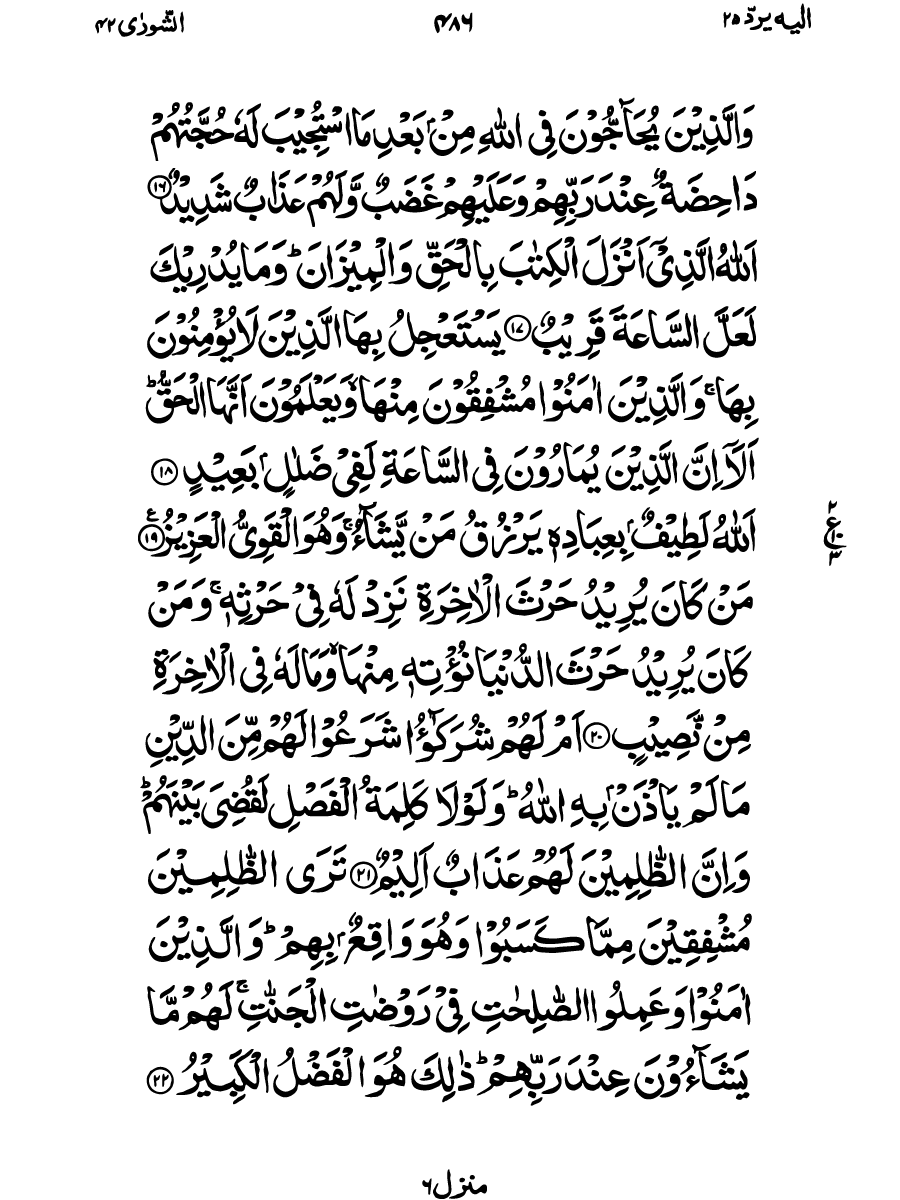 الیه یردّ ۲۵
۴۸۶
الشّورٰی ۴۲
وَالَّذِیْنَ یُحَآجُّوْنَ فِی اللّٰهِ مِنْۢ بَعْدِ مَا اسْتُجِیْبَ لَهٗ حُجَّتُهُمْ
دَاحِضَةٌ عِنْدَ رَبِّهِمْ وَعَلَیْهِمْ غَضَبٌ وَّلَهُمْ عَذَابٌ شَدِیْدٌ ۟۱۶
اَللّٰهُ الَّذِیْۤ اَنْزَلَ الْكِتٰبَ بِالْحَقِّ وَالْمِیْزَانَ ؕ وَمَا یُدْرِیْكَ
لَعَلَّ السَّاعَةَ قَرِیْبٌ ۟۱۷ یَسْتَعْجِلُ بِهَا الَّذِیْنَ لَا یُؤْمِنُوْنَ
بِهَا ۚ وَالَّذِیْنَ اٰمَنُوْا مُشْفِقُوْنَ مِنْهَا ۙ وَیَعْلَمُوْنَ اَنَّهَا الْحَقُّ ؕ
اَلَاۤ اِنَّ الَّذِیْنَ یُمَارُوْنَ فِی السَّاعَةِ لَفِیْ ضَلٰلٍۭ بَعِیْدٍ ۟۱۸
اَللّٰهُ لَطِیْفٌۢ بِعِبَادِهٖ یَرْزُقُ مَنْ یَّشَآءُ ۚ وَهُوَ الْقَوِیُّ الْعَزِیْزُ ۟۱۹
۲
ع
۱۰
۳
مَنْ كَانَ یُرِیْدُ حَرْثَ الْاٰخِرَةِ نَزِدْ لَهٗ فِیْ حَرْثِهٖ ۚ وَمَنْ
كَانَ یُرِیْدُ حَرْثَ الدُّنْیَا نُؤْتِهٖ مِنْهَا ۙ وَمَا لَهٗ فِی الْاٰخِرَةِ
مِنْ نَّصِیْبٍ ۟۲۰ اَمْ لَهُمْ شُرَكٰٓؤُا شَرَعُوْا لَهُمْ مِّنَ الدِّیْنِ
مَا لَمْ یَاْذَنْۢ بِهِ اللّٰهُ ؕ وَلَوْلَا كَلِمَةُ الْفَصْلِ لَقُضِیَ بَیْنَهُمْ ؕ
وَاِنَّ الظّٰلِمِیْنَ لَهُمْ عَذَابٌ اَلِیْمٌ ۟۲۱ تَرَی الظّٰلِمِیْنَ
مُشْفِقِیْنَ مِمَّا كَسَبُوْا وَهُوَ وَاقِعٌۢ بِهِمْ ؕ وَالَّذِیْنَ
اٰمَنُوْا وَعَمِلُوا الصّٰلِحٰتِ فِیْ رَوْضٰتِ الْجَنّٰتِ ۚ لَهُمْ مَّا
یَشَآءُوْنَ عِنْدَ رَبِّهِمْ ؕ ذٰلِكَ هُوَ الْفَضْلُ الْكَبِیْرُ ۟۲۲
منزل ۶